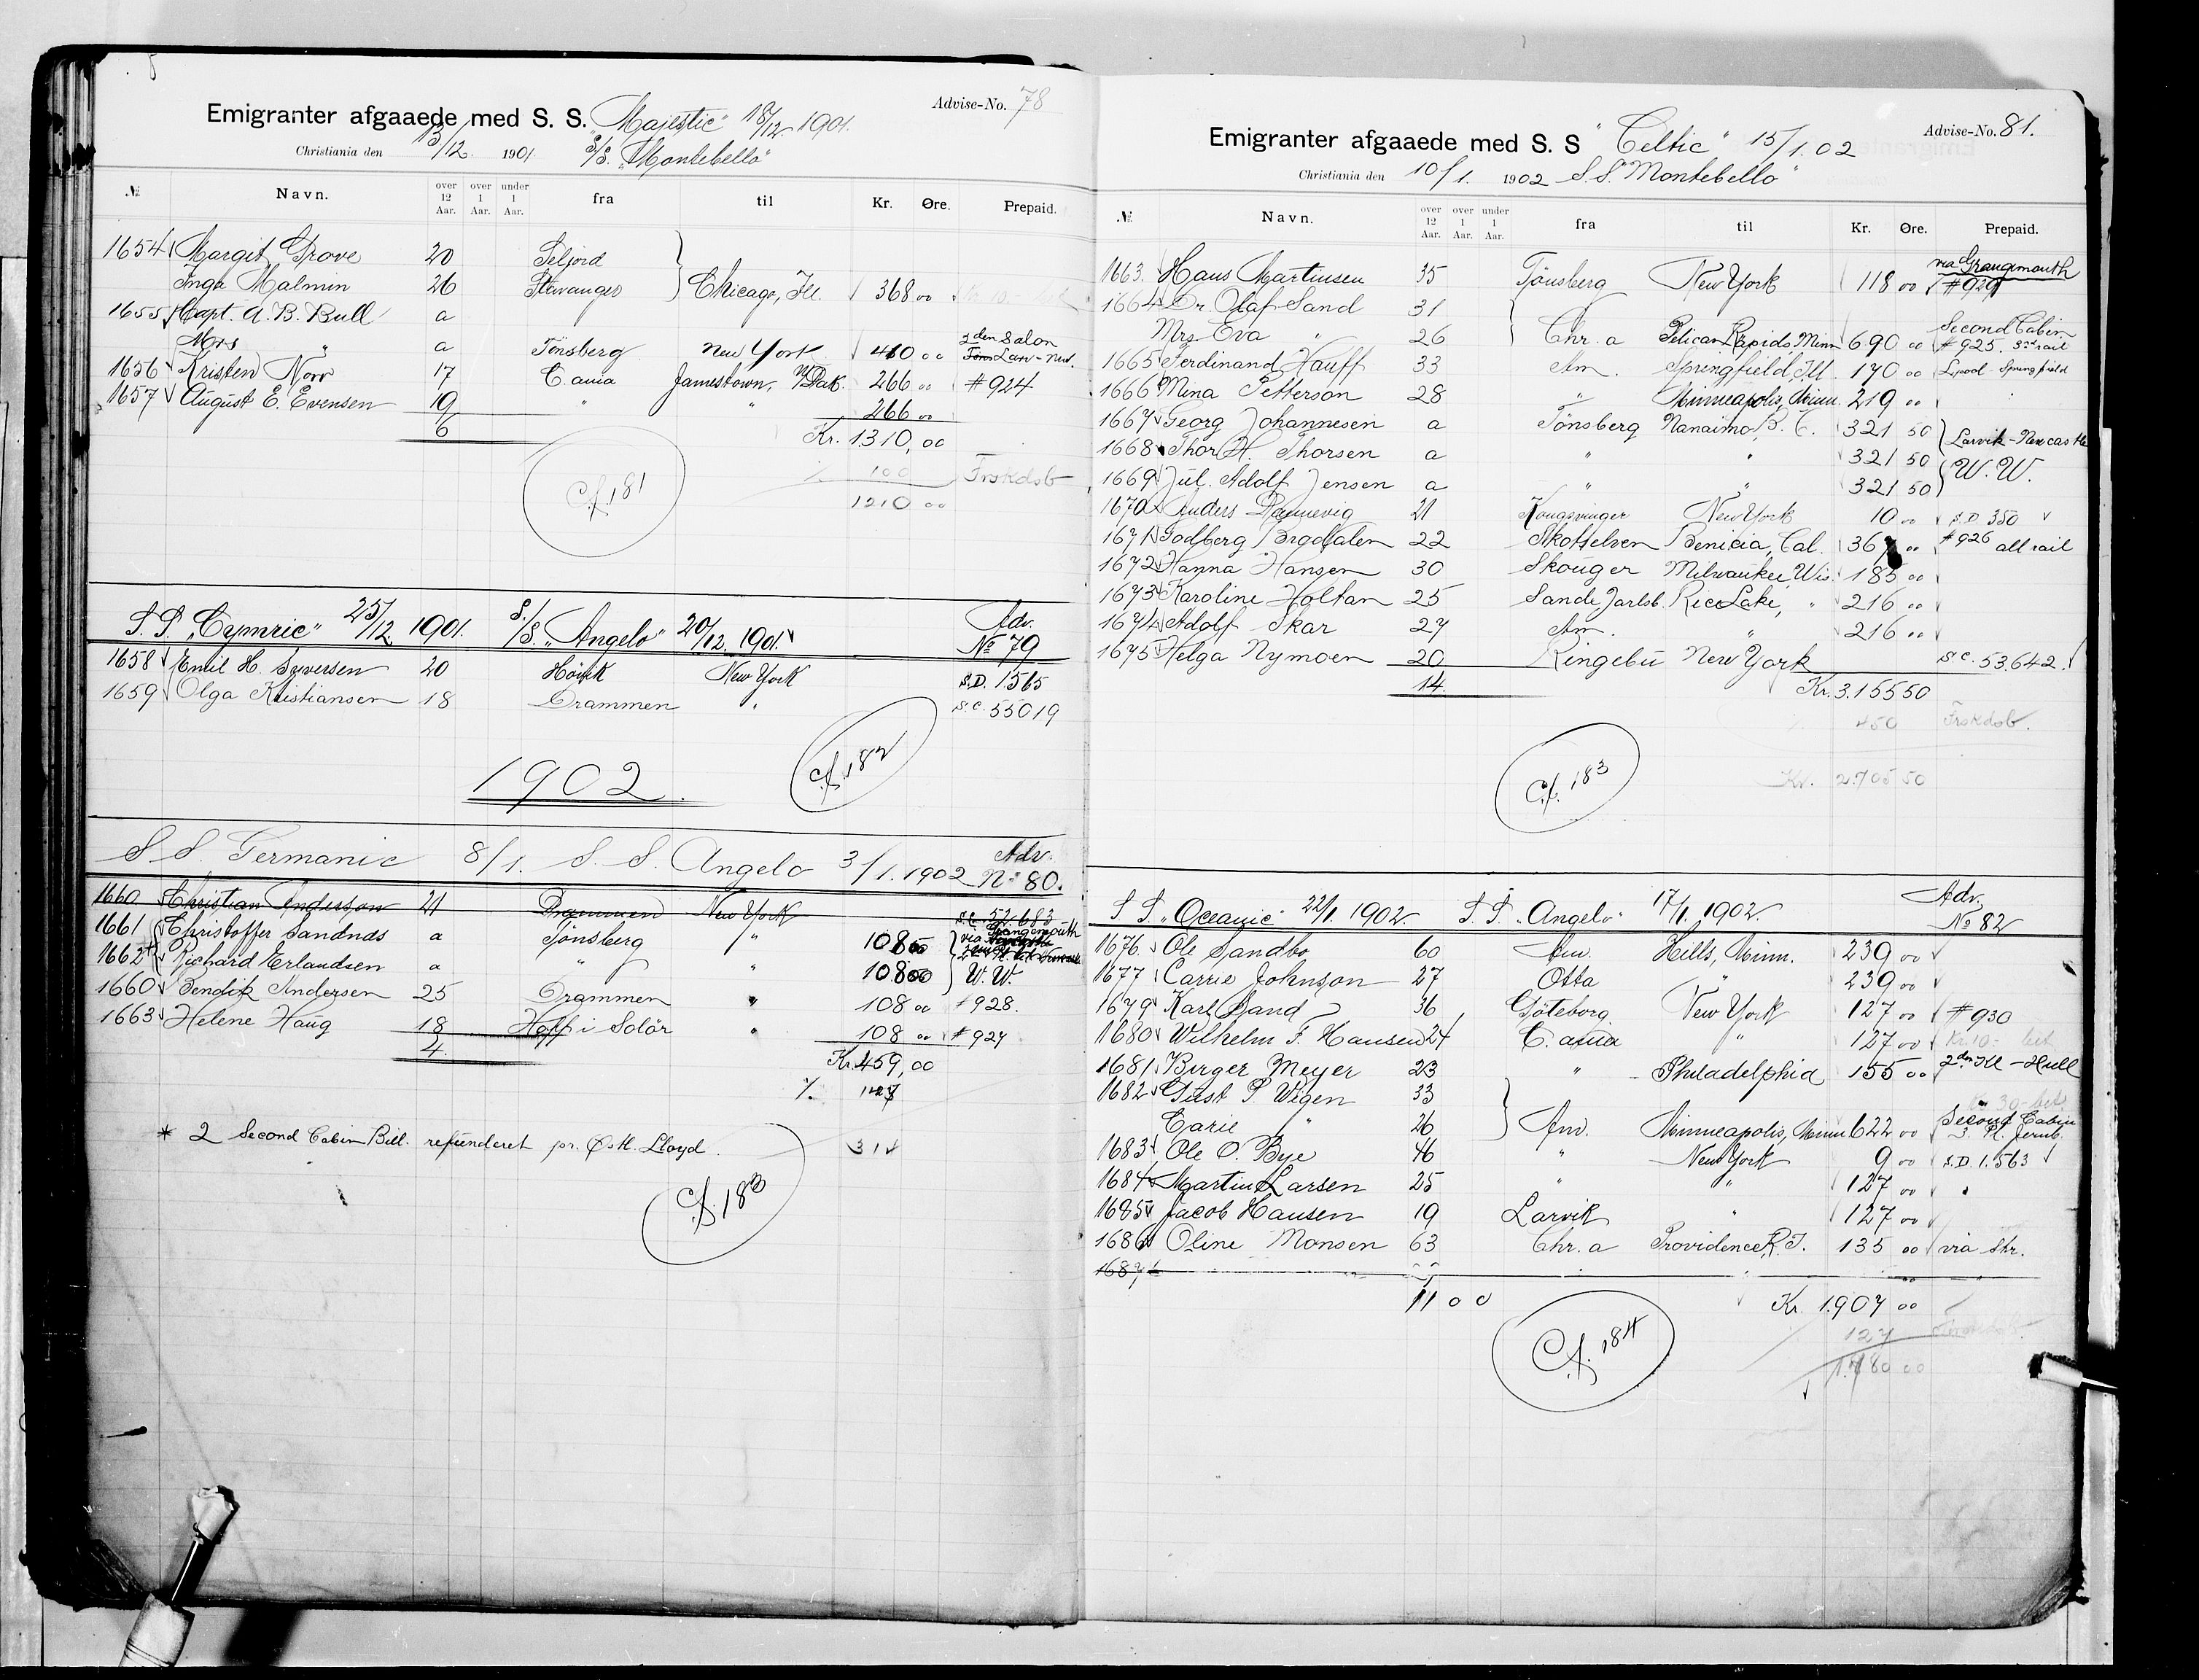 Advise-No. 78
Emigranter afgaaede med S. S. „Majestic" 18/12 1901.
Christiania den 13/12 1901. S/S. „Montebello"
№ Navn. over 12 Aar. over 1 Aar. under 1 Aar. fra til Kr. Øre. Prepaid.
1654 Margit Grove 20 Seljord
Inga Malmin 26 Stavanger Chicago, Ill. 368 00
1655 Capt. A. B. Bull a
Mrs " a Tönsberg New York 410 00 2den Salon
1656 Kristen Norr 17 C.ania Jamestown, N/Dak. 266 00 #924
1657 August E. Evensen 19 " " 266 00
6 Kr. 1310,00
% 100 Frskdsb
1210 00
Cf. 181
S. S. „Cymric" 25/12 1901. S/S. „Angelo" 20/12 1901. Adv. No 79
1658 Emil H. Syversen 20 Hövik New York S.D. 1565
1659 Olga Kristiansen 18 Drammen " S.C. 55019
Cf. 182
1902.
S. S. Germanic 8/1. S. S. Angelo 3/1. 1902 Adv. No 80.
1660 Christian Anderson 21 Drammen New York S.C. 52683
1661 Christoffer Sandnds a Tönsberg " 108 00 via Grangemouth
1662 Richard Erlandsen a " " 108 00 W. W.
1660 Bendik Andersen 25 Drammen " 108 00 #928.
1663 Helene Haug 18 Hoff i Solör " 108 00 #927
4 Kr. 459,00
%
* 2 Second Cabin Bill. refunderet pr. Østl. Lloyd.
Cf. 183
Advise-No. 81.
Emigranter afgaaede med S. S „Celtic" 15/1. 02
Christiania den 10/1. 1902 S. S. "Montebello"
№ Navn. over 12 Aar. over 1 Aar. under 1 Aar. fra til Kr. Øre. Prepaid.
1663. Hans Martinsen 35 Tönsberg New York 118 00 via Grangemouth #929
1664 Dr. Olaf Sand 31
Mrs Eva " 26 Chr.a Pelican Rapids, Minn 690 00 Second Cabin #925. 3rd rail
1665 Ferdinand Hauff 33 Am. Springfield, Ill. 170 00 Lpool - Springfield
1666 Mina Petterson 28 " Minneapolis, Minn. 219 00
1667 Georg Johannesen a Tönsberg Nanaimo, B. C. 321 50 Larvik - Newcastle
1668 Thor H. Thorsen a " " 321 50 W. W.
1669 Jul. Adolf Jensen a " " 321 50
1670 Anders Rannevig 21 Kongsvinger New York 10 00 S.D. 350
1671 Godberg Brodalen 22 Skotselven Benicia, Cal. 367 00 #926 all rail
1672 Hanna Hansen 30 Skouger Milwaukee, Wis. 185 00
1673 Karoline Holtan 25 Sande Jarlsb. Rice Lake, " 216 00
1674 Adolf Skar 27 Am. " 216 00
1675 Helga Nymoen 20 Ringebu New York S.C. 53.642.
14 Kr. 3.155 50
450 Frskdsb.
Kr. 2.705 50
Cf. 183
S. S. „Oceanic" 22/1. 1902. S. S. „Angelo" 17/1. 1902. Adv. No 82
1676 Ole Sandbo, 60 Am. Hills, Minn. 239 00
1677 Carrie Johnson 27 Otta " 239 00
1679 Karl Sand 36 Göteborg New York 127 00 #930
1680 Wilhelm F. Hansen 24 C.ania " 127 00 Kr. 10.- bet
1681 Birger Meyer 23 " Philadelphia 155 00 2den Kl - Hull
1682 Gust P. Wigen 33
Carie " 26 Am. Minneapolis, Minn 622 00 Second Cabin
1683 Ole O. Bye 46 " New York 9 00 S.D. 1.563
1684 Martin Larsen 25 " " 127 00
1685 Jacob Hansen 19 Larvik " 127 00
1686 Oline Monsen 63 Chr.a Providence, R. I. 135 00 via Shr.
1687
11 0 0 Kr. 1.907 00
127
1.780 00
Cf. 184